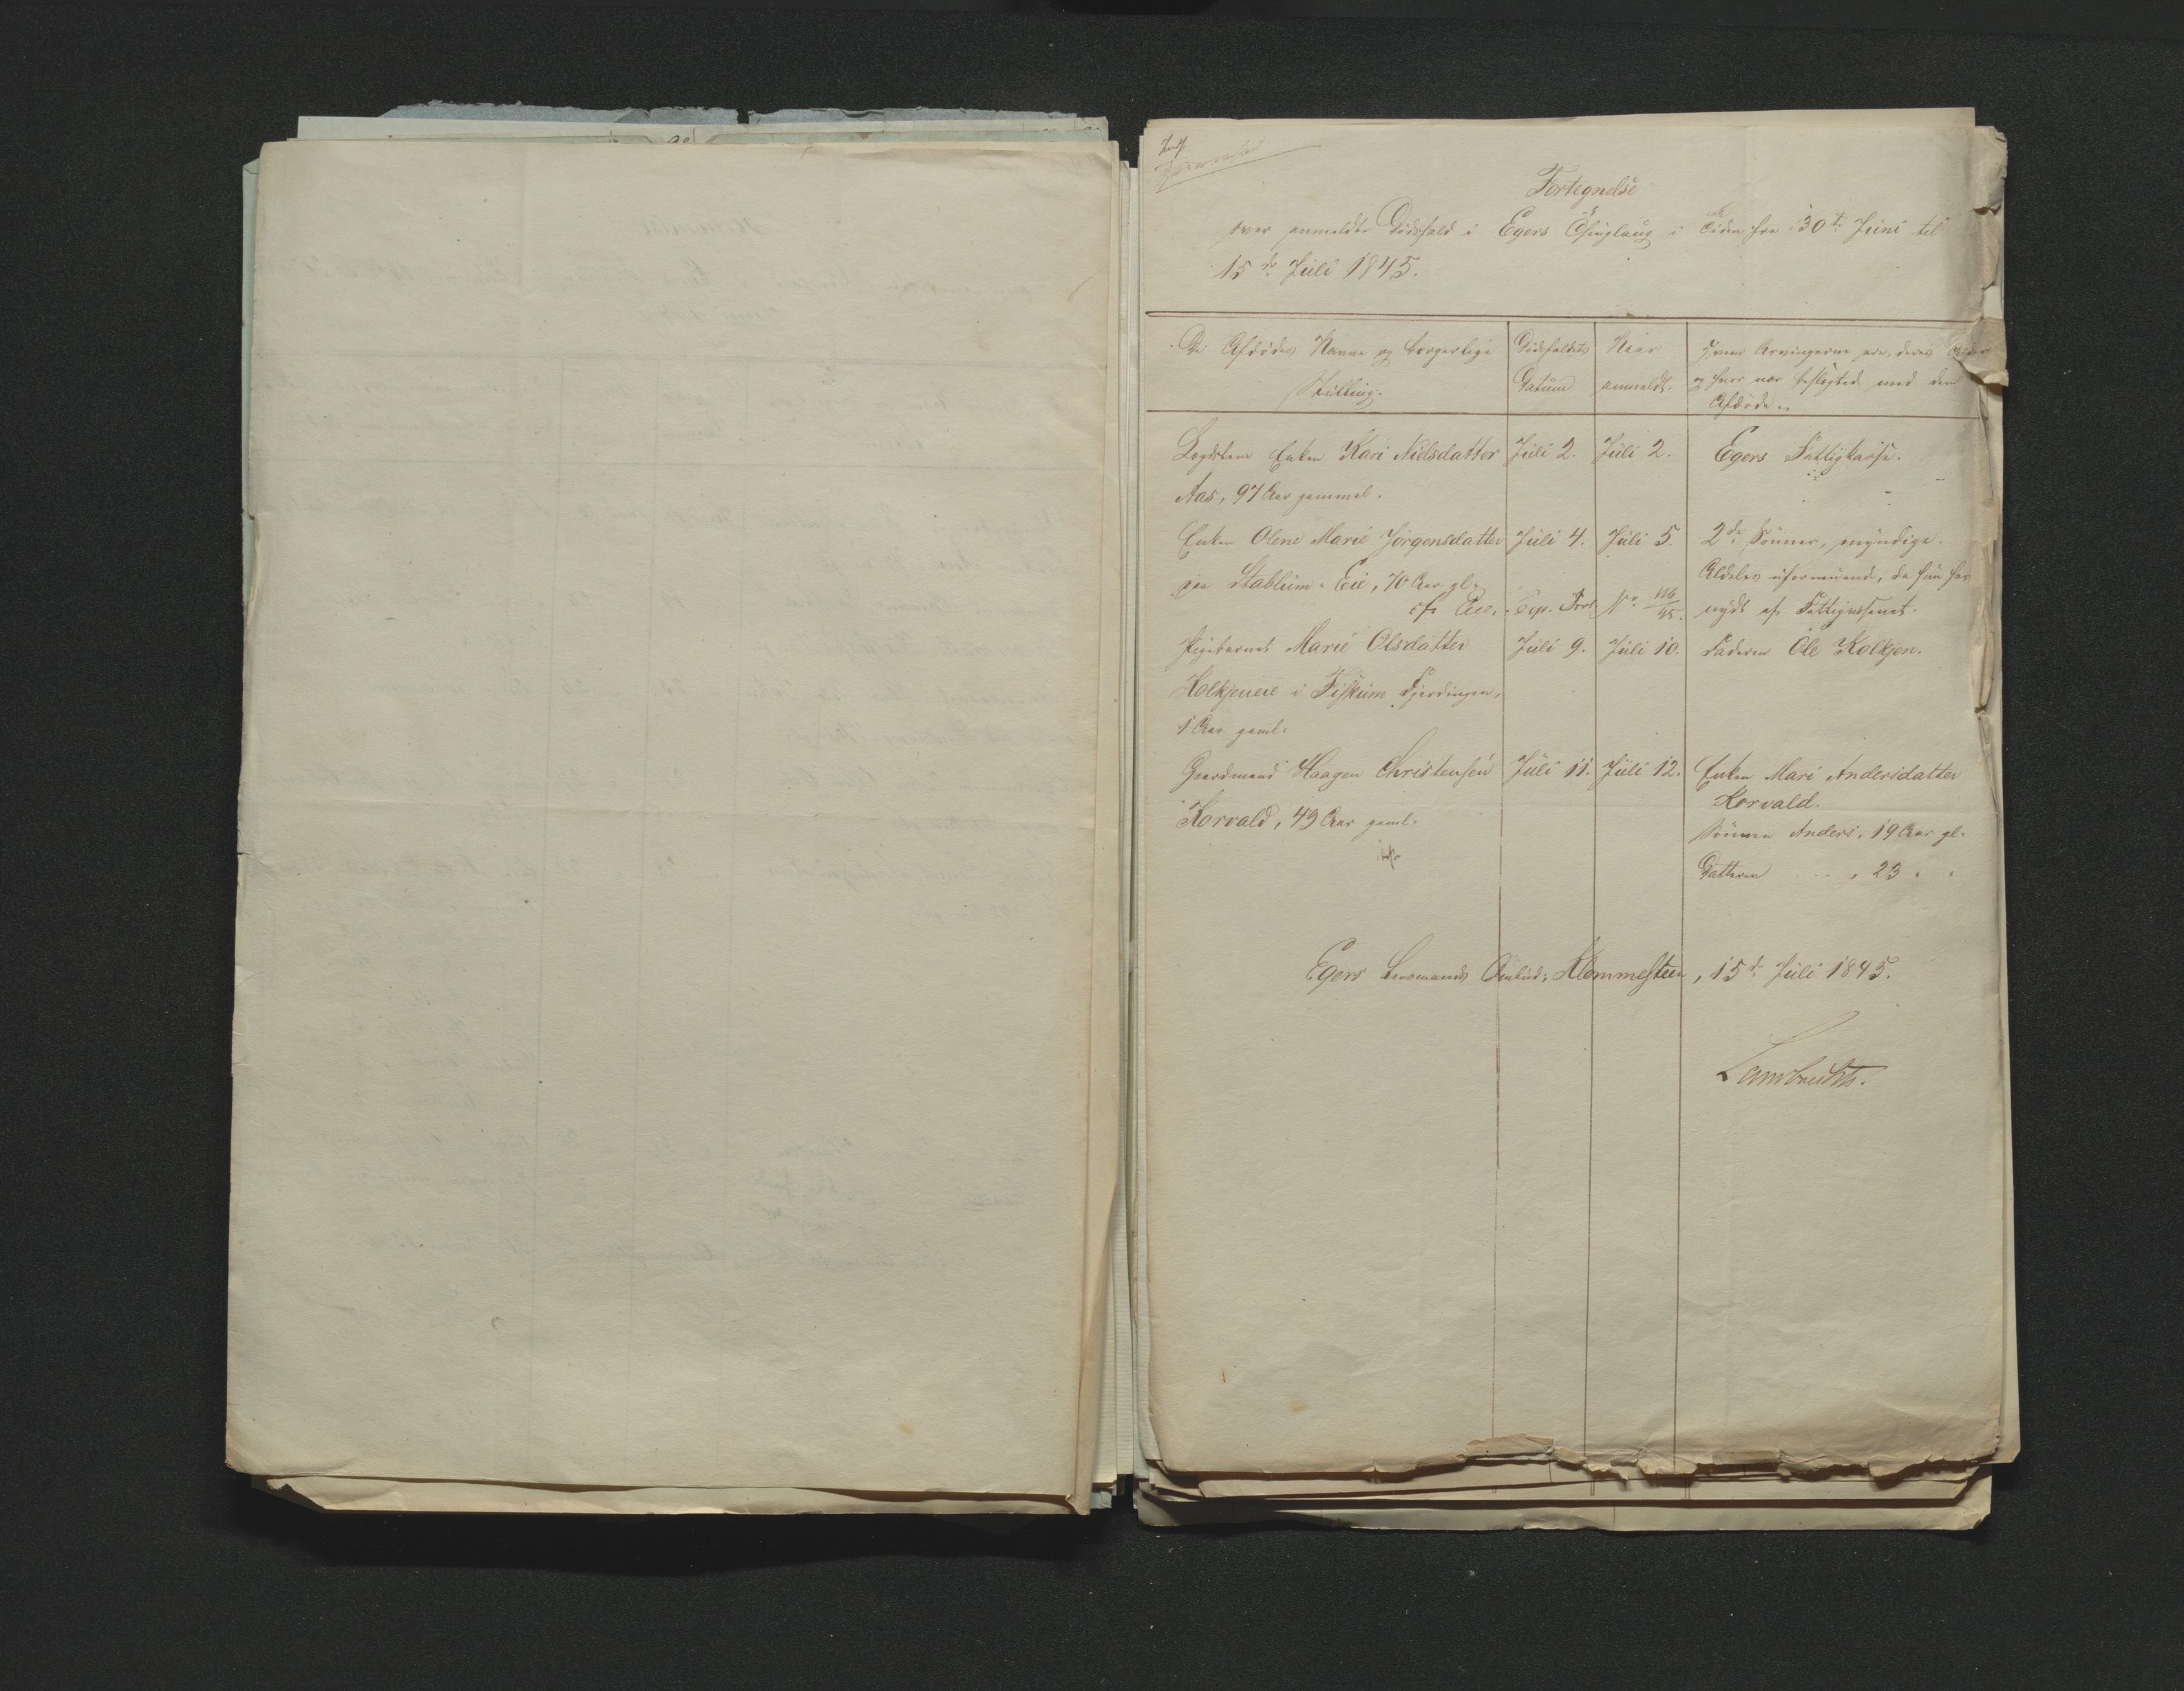 Fortegnelse
over anmeldte Dödsfald i Egers Thinglaug i Tiden fra 30te Juni til
15de Juli 1845.
De Afdödes Navne og borgerlige Stilling.
Dödsfaldets Datum
Naar anmeldt.
Hvem Arvingerne ere, deres Alder
og hvor nær beslægtede med den
Afdöde.
Lægdslem Enken Kari Nielsdatter Juli 2. Juli 2. Egers Fattigkasse.
Aas, 97 Aar gammel.
Enken Olene Marie Jörgensdatter Juli 4. Juli 5. 2de Sönner, myndige.
paa Stablum-Eie, 70 Aar gl. Aldeles uformuende, da hun har
Prot. No 116/45. nydt af Fattigvæsenet.
Pigebarnet Marie Olsdatter Juli 9. Juli 10. Faderen Ole Kolkjen.
Kolkjeneie i Fiskum Fjerdingen,
1 Aar gaml.
Gaardmand Haagen Christensen Juli 11. Juli 12. Enken Mari Andersdatter
Korvald.
Korvald, 49 Aar gaml.
Sönnen Anders, 19 Aar gl.
Datteren , 23 " "
Egers Lensmands Ombud, Klommesteen, 15de Juli 1845.
Lambrechts.